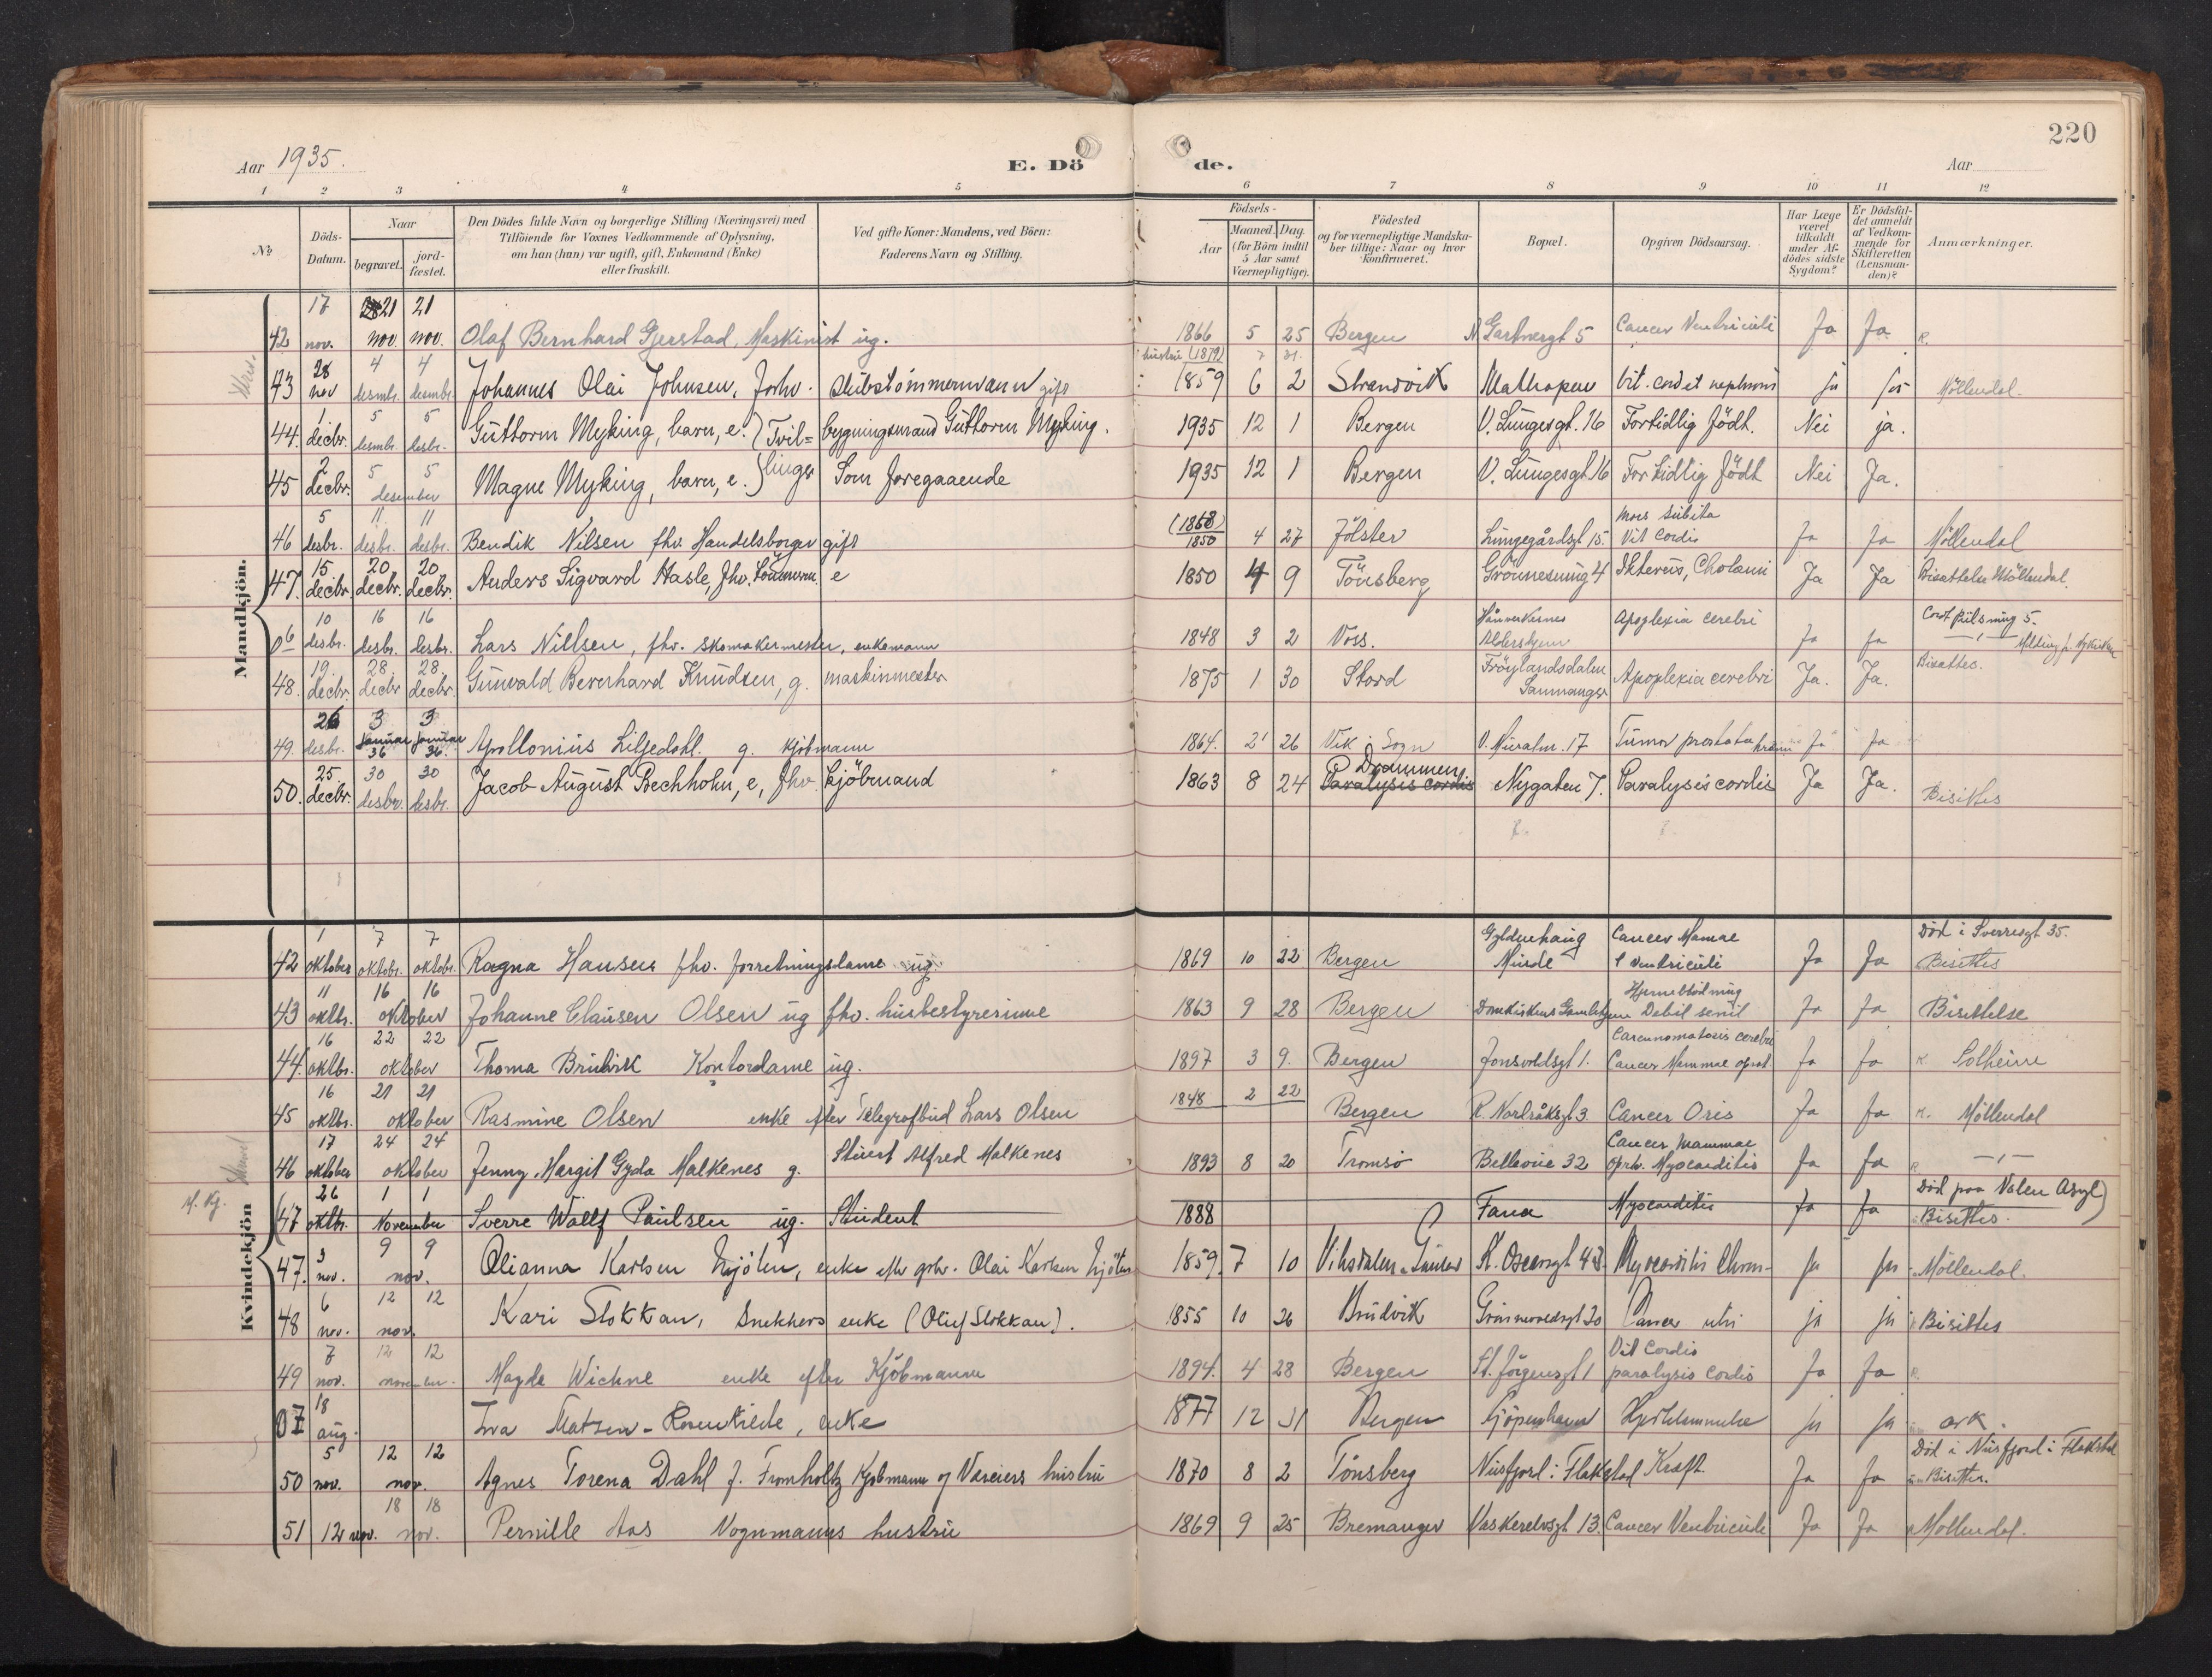 220
Aar 1935. E. Dö de. Aar
1 2 3 4 5 6 7 8 9 10 11 12
No. Döds-Datum. Naar begravet. jord-fæstet. Den Dödes fulde Navn og borgerlige Stilling (Næringsvei) med Tilföiende for Voxnes Vedkommende af Oplysning, om han (hun) var ugift, gift, Enkemand (Enke) eller fraskilt. Ved gifte Koner: Mandens, ved Börn: Faderens Navn og Stilling. Födsels- Aar Maaned. Dag. (for Börn indtil 5 Aar samt Værnepligtige). Födested og for værnepligtige Mandska-ber tillige: Naar og hvor Konfirmeret. Bopæl. Opgiven Dödsaarsag. Har Læge været tilkaldt under Af-dödes sidste Sygdom? Er Dödsfal-det anmeldt af Vedkom-mende for Skifteretten (Lensman-den)? Anmærkninger.
Mandkjön.
42 17 nov. 21 nov. 21 nov. Olaf Bernhard Gjerstad, Maskinist ug. 1866 5 25 Bergen N. Gartnergt 5 Cancer Ventriculi Ja Ja R.
hustru (1879)
43 28 nov 4 desmbr. 4 desmbr. Johannes Olai Johnsen, Forhv. skibstömmermann gift 1859 6 2 Strandvik Mathopen Vit. cord et nephrosis ja ja Möllendal.
44. 1 decbr. 5 desmbr. 5 desbr. Guttorm Myking, barn, e. } Tvil= bygningsmand Guttorm Myking. 1935 12 1 Bergen V. Lungesgt. 16 Fortidlig födt. Nei ja.
45 2 decbr. 5 5 desember Magne Myking, barn, e. } linger Som foregaaende 1935 12 1 Bergen V. Lungesgt 16 For tidlig födt Nei Ja.
46 5 desbr. 11 desbr. 11 desbr. Bendik Nilsen fhv. Handelsborger gift (1858) 1850 4 27 Jölster Lungegårdsgt 15. Mors subita Vit Cordis Ja Ja Möllendal
47. 15 decbr. 20 decbr. 20 decbr. Anders Sigvard Hasle, fhv. Tömmerm. e 1850 4 9 Tönsberg Grönnesmug 4 Ikterus, Cholæmi Ja Ja Bisættelse Möllendal.
06 10 desbr. 16 desbr. 16 desbr. Lars Nillsen, fhv. skomakermester, enkemann 1848 3 2 Voss. Aldershjem Apoplexia cerebri Ja Ja
48. 19. decbr. 28. decbr 28. decbr. Gunvald Bernhard Knudsen, g. maskinmester 1875 1 30 Stord Fröylandsdalen Samnanger Apoplexia cerebri Ja. Ja. Bisættes.
49. 26 desbr. 3 Januar 36 3 Januar 36. Apollonius Liljedahl. g. Kjöbmann 1864. 2 26 Vik i Sogn V. Muralm. 17 Tumor prostata Ja Ja
50. 25. decbr. 30 desbr. 30 desbr. Jacob August Bechholm, e, fhv. kjöbmand 1863 8 24 Drammen Paralysis cordis Nygaten 7. Paralysis cordis Ja Ja. Bisættes
Kvindekjön
42 1 oktober 7 oktobr. 7 oktobr. Ragna Hansen fhv. forretningsdame ug. 1869 10 22 Bergen Gyldenhaug Minde Cancer Mamae Ventriculi Ja Ja Död i Sverresgt 35. Bisettes
43 11 oktbr. 16 16 oktober Johanne Clausen Olsen ug fhv. husbestyrerinne 1863 9 28 Bergen Domkirkens Gamlehjem Hjerneblödning Debil senil Ja Ja Bisettelse
44. 16 oktbr. 22 22 oktober Thoma Brudvik Kontordame ug. 1897 3 9. Bergen Jonsvoldsgt 1. Carcinomatosis cerebri Cancer Mammae Ja Ja R. Solheim
45 16 oktbr. 21 21 oktober Rasmine Olsen enke efter Telegrafbud Lars Olsen 1848 2 22 Bergen R. Nordråksgt 3 Cancer Oris Ja Ja R. Möllendal
46 17 oktober 24 24 oktober Jenny Margit Gyda Malkenes g. Stuert Alfred Malkenes 1893 8 20 Tromsö Bellevue 32 Cancer Mammae oprt. Myocarditis Ja Ja R. — „ —
M. Kj. (47 26 oktbr. 1 1 November Sverre Wallf Paulsen ug. Student 1888 Fana Myocarditis Ja Ja Död paa Valen Asyl) Bisettes.
47. 3 nov. 9 9 nov. Olianna Karlsen Nyöten, enke efter Olai Karlsen 1859 7 10 K. Oscarsgt 43. Myocarditis Chron. ja ja Möllendal.
48 6 nov. 12 12 nov. Kari Stokkan, Snekkers enke (Oluf Stokkan). 1855 10 26 Brudvik Cancer uteri ja ja Bisettes
49 7 nov. 12 12 november. Magda Wichne enke efter Kjöbmann 1894. 4 28 Bergen St. Jörgensgt 1 Vit Cordis paralysis cordis Ja Ja R.
07 18 aug. Matsen-Rosenkilde, enke 1877 12 31 Bergen Kjöpenhavn Hjertelammelse ja ja
50 5 nov. 12 12 nov. Agnes Torena Dahl f. Fromholtz Kjöbmann og Væreiers hustru 1870 8 2 Tönsberg Nusfjord i Flakstad Kræft. Ja Ja Död i Nusfjord i Flakstad Bisettes.
51 12 nov. 18 18 nov. Pernille Aas Vognmanns hustru 1869 9 25 Bremanger Vaskerelvsgt 13. Cancer Ventriculi Ja Ja Möllendal.